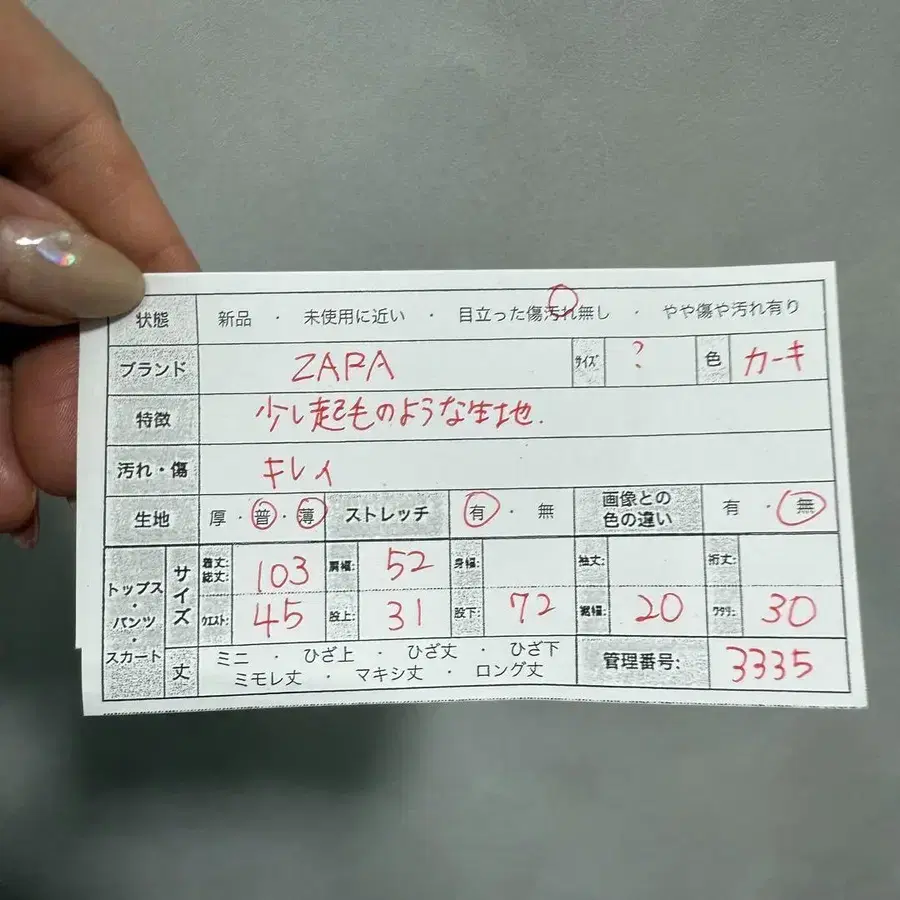 状態 新品 ・ 未使用に近い ・ 目立った傷汚れ無し ・ やや傷や汚れ有り
ブランド ZARA サイズ ? 色 カーキ
特徴 少し起毛のような生地.
汚れ・傷 キレイ
生地 厚・普・薄 ストレッチ 有・無 画像との色の違い 有・無
トップス・パンツ・スカート サイズ 着丈:総丈: 103 肩幅: 52 身幅: 袖丈: 裄丈:
ウエスト: 45 股上: 31 股下: 72 裾幅: 20 ワタリ: 30
丈 ミニ ・ ひざ上 ・ ひざ丈 ・ ひざ下
ミモレ丈 ・ マキシ丈 ・ ロング丈
管理番号: 3335